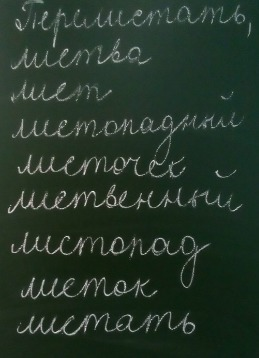 Перелистать,
листва
лист
листопадный
листочек
лиственный
листопад
листок
листать